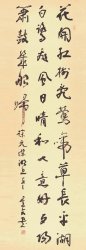 花開紅樹亂鶯啼草長平湖
白鷺飛風日晴和人意好夕陽
簫鼓幾船歸 徐元杰湖上